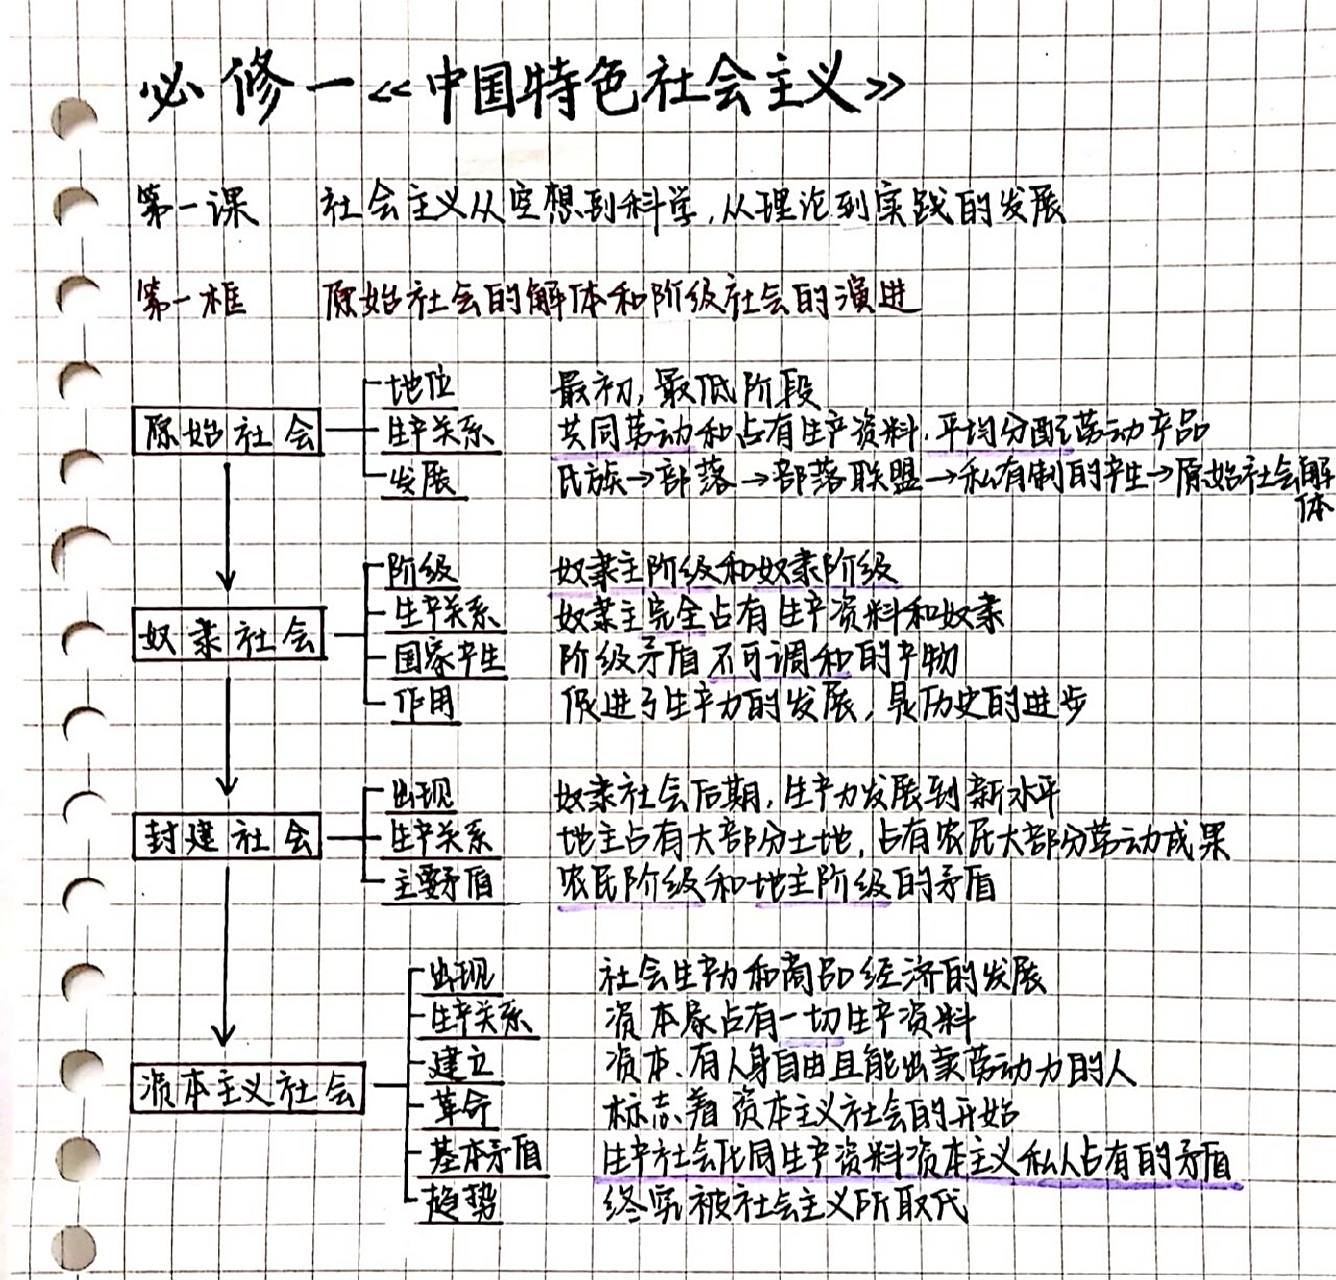 必修一《中国特色社会主义》
第一课 社会主义从空想到科学,从理论到实践的发展
第一框 原始社会的解体和阶级社会的演进
原始社会
地位 最初,最低阶段
生产关系 共同劳动和占有生产资料.平均分配劳动产品
发展 氏族→部落→部落联盟→私有制的产生→原始社会解体
奴隶社会
阶级 奴隶主阶级和奴隶阶级
生产关系 奴隶主完全占有生产资料和奴隶
国家产生 阶级矛盾不可调和的产物
作用 促进了生产力的发展,是历史的进步
封建社会
出现 奴隶社会后期,生产力发展到新水平
生产关系 地主占有大部分土地,占有农民大部分劳动成果
主要矛盾 农民阶级和地主阶级的矛盾
资本主义社会
出现 社会生产力和商品经济的发展
生产关系 资本家占有一切生产资料
建立 资本、有人身自由且能出卖劳动力的人
革命 标志着资本主义社会的开始
基本矛盾 生产社会化同生产资料资本主义私人占有的矛盾
趋势 终究被社会主义所取代